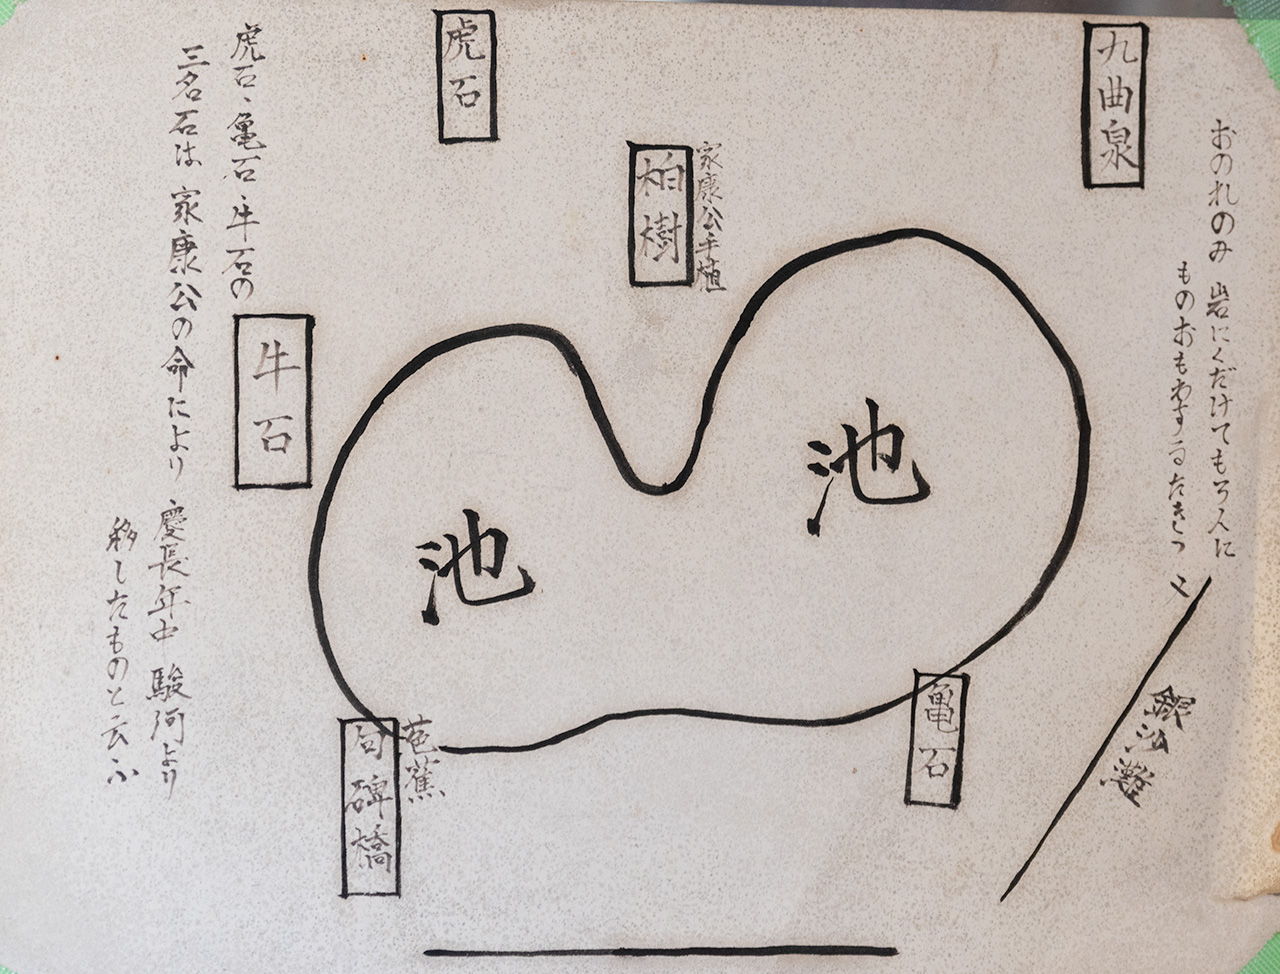 九曲泉
おのれのみ 岩にくだけてもろ人に
ものおもわするたきつ
銀沙灘
家康公手植
柏樹
虎石
池
池
亀石
芭蕉
句碑橋
牛石
虎石、亀石、牛石の
三名石は 家康公の命により 慶長年中 駿河より
移したものと云ふ